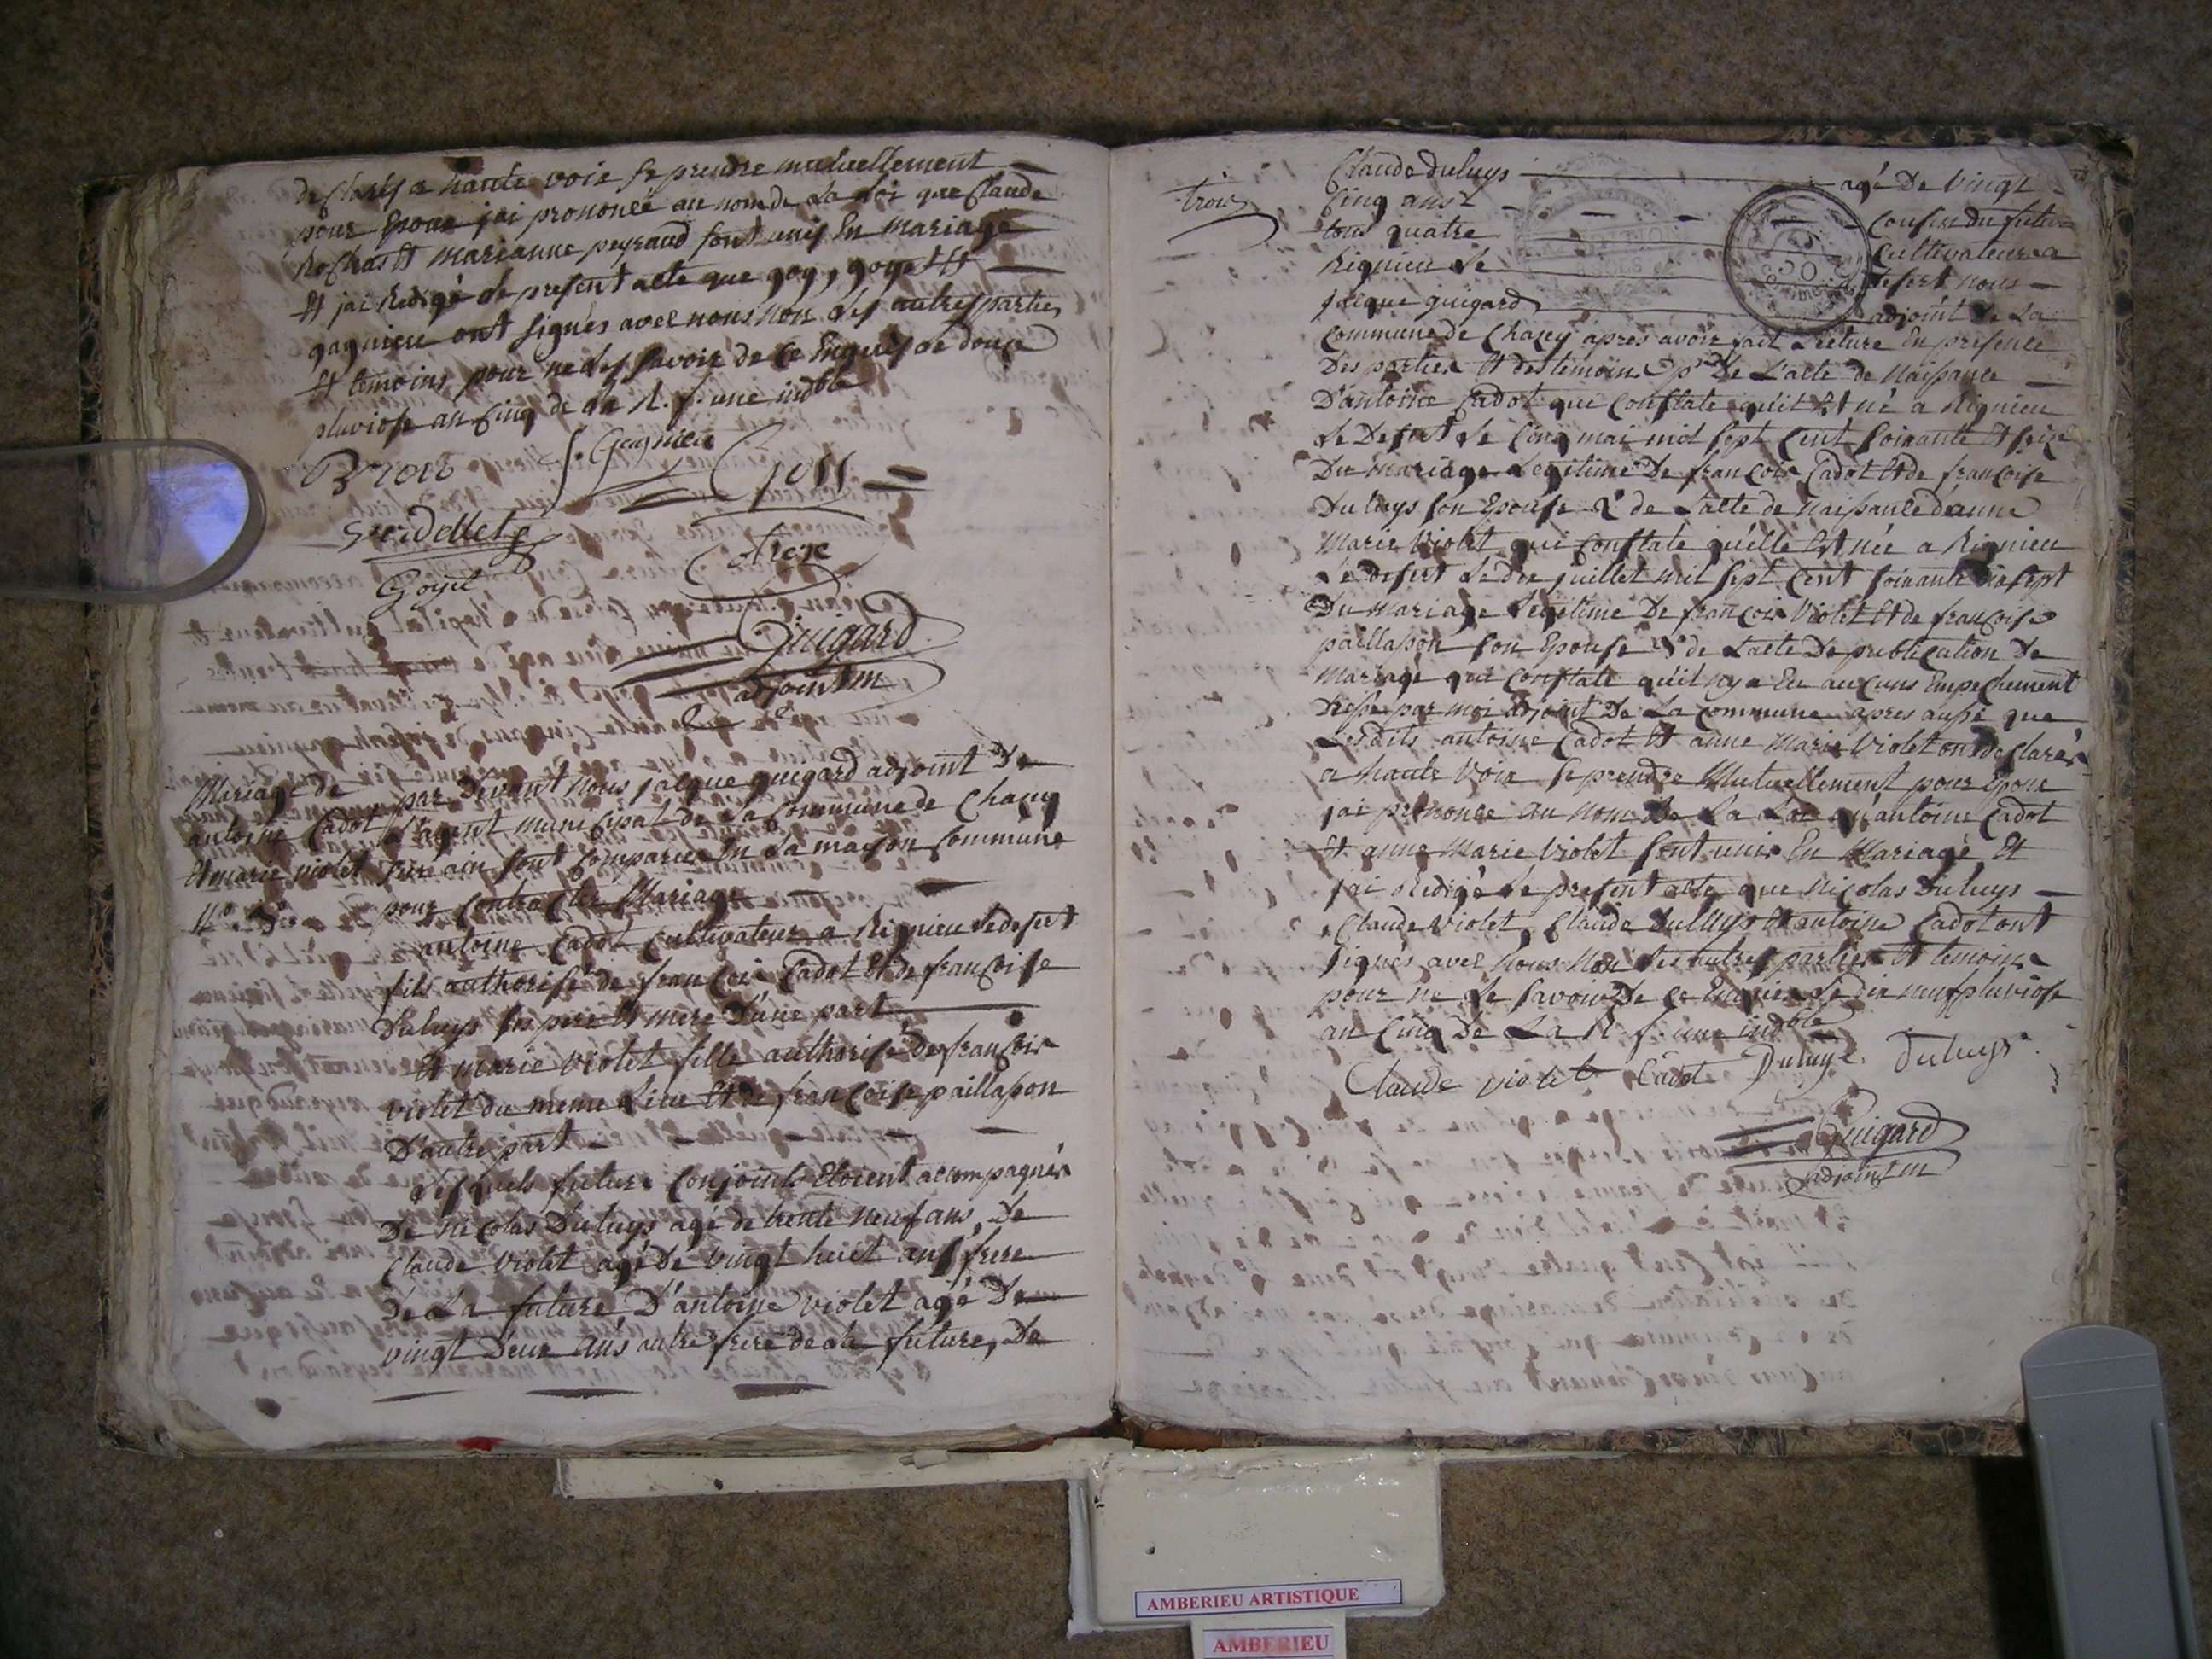 declarés a haute voix se prendre mutuellement
pour Epoux jai prononcé au nom de La Loi que Claude
Rochas Et marianne peyraud sont unis En mariage
Et jai Redigé Le present acte que goy, goyet Et
gagnieu ont signés avec nous non Les autres parties
Et temoins pour ne Le savoir de ce Enquis Le douze
pluviose an Cinq de La R. f. une indble
S. Gagnieu
Goyet
Guigard
adjoint m
Mariage de
antoine Cadot
Et marie violet
N° 3e
par Devant Nous jacque guigard adjoint De
L'agent municipal de La Commune de Chazey
sur ain sont Comparus En La maison Commune
pour Contracter Mariage
antoine Cadot Cultivateur a Rignieu Le desert
fils authorisé de françois Cadot Et de françoise
Duluys ses pere Et mere D'une part
Et marie Violet fille authorisé De françois
violet du meme Lieu Et de françoise paillasson
D'autre part
Lesquels futurs Conjoints Etoient accompagnés
De nicolas Duluys agé de trente neuf ans, De
Claude Violet agé De vingt huit ans frere
De La future D'antoine violet agé De
vingt Deux ans autre frere de La future, De
trois
Claude duluys agé De Vingt
Cinq ans Cousin du futur
tous quatre Cultivateurs a
Rignieu Le desert nous
jacque guigard adjoint De La
Commune de Chazey apres avoir fait Lecture En presence
Des parties Et des temoins 1° De L'acte de Naissance
D'antoine Cadot qui Constate qu'il Est né a Rignieu
Le Desert Le Cinq mai mil sept Cent soixante Et seize
Du Mariage Legitime De françois Cadot Et de françoise
Duluys son Epouse 2° de L'acte de Naissance d'anne
Marie Violet qui Constate qu'elle Est née a Rignieu
Le desert Le dix juillet mil sept Cent soixante dix sept
Du Mariage Legitime De françois Violet Et de françoise
paillasson son Epouse 3° de L'acte De publication De
Mariage qui Constate qu'il ny a Eu aucuns Empechement
Dressé par moi adjoint De La Commune apres aussi que
Lesdits antoine Cadot Et anne Marie Violet ont declarés
a haute Voix se prendre Mutuellement pour Epoux
jai prononcé au nom De La Loi qu'antoine Cadot
Et anne Marie Violet sont unis En Mariage Et
jai Redigé Le present acte que Nicolas Duluys
Claude Violet, Claude Duluys Et antoine Cadot ont
signés avec Nous Non Les autres parties Et temoins
pour ne Le savoir De ce Enquis Le dix neuf pluviose
an Cinq De La R. f. une indble
Claude violet Cadot Duluys Duluys
Guigard
adjoint m
AMBERIEU ARTISTIQUE
AMBERIEU